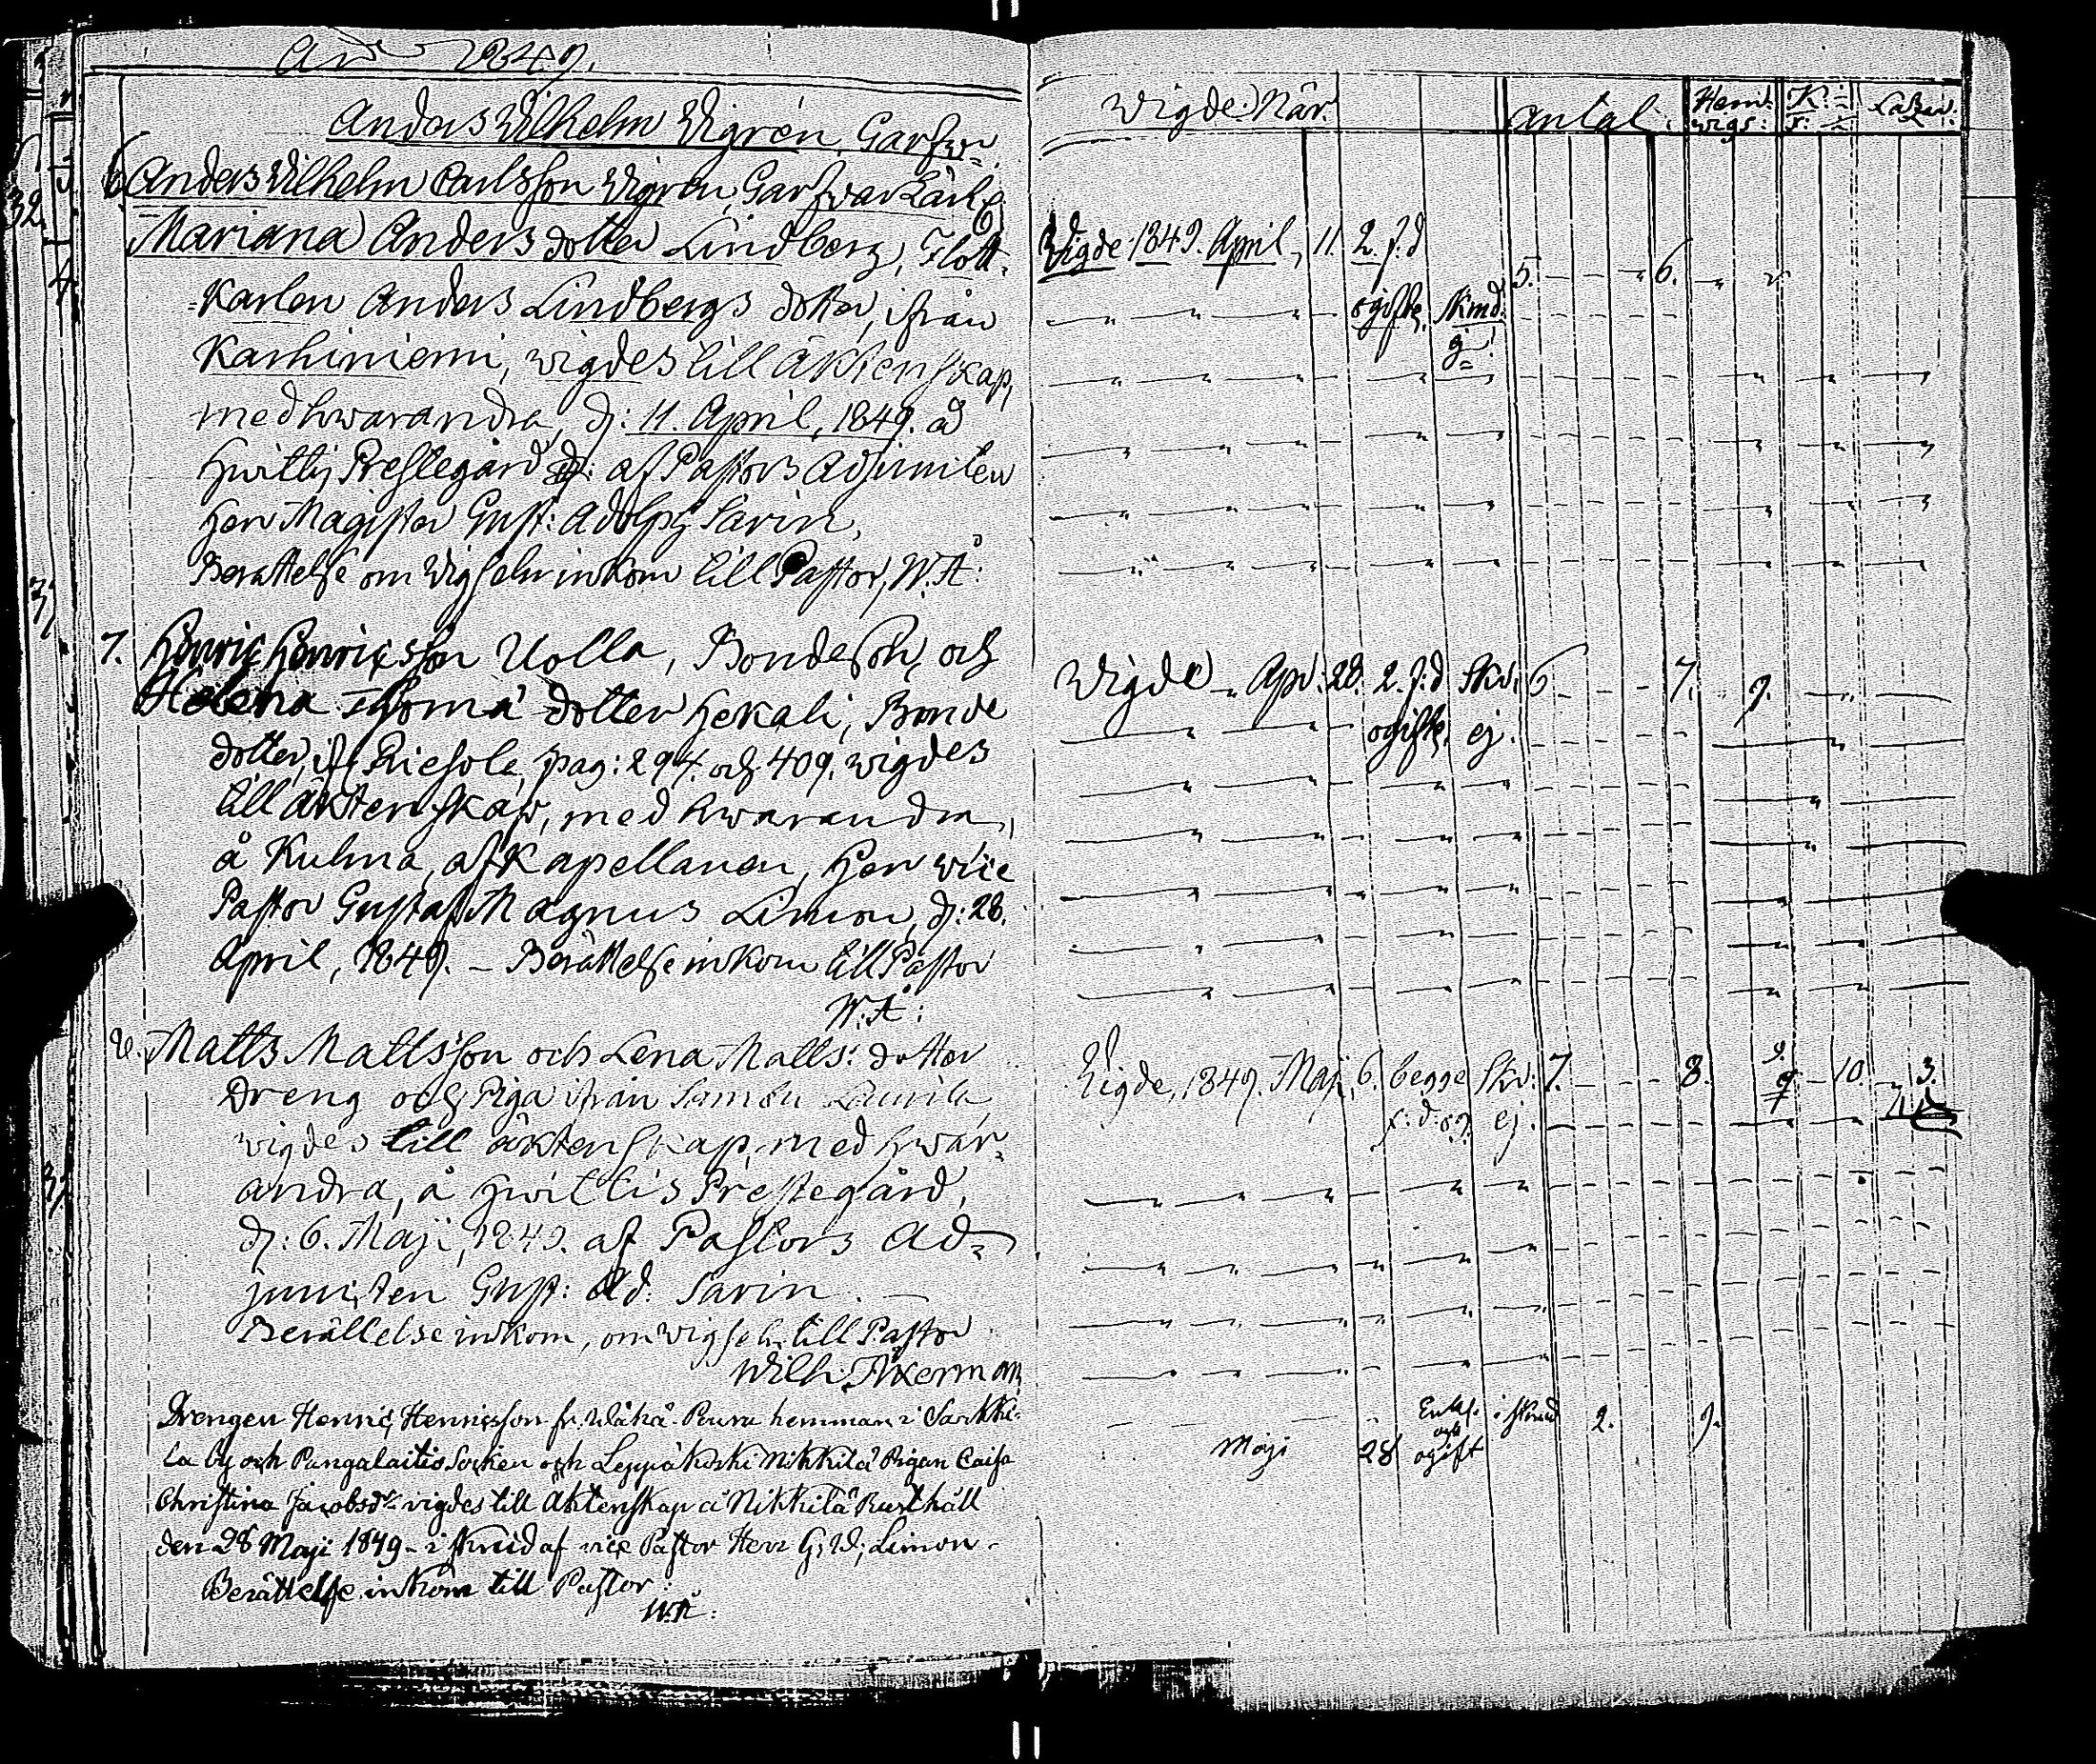 År 1849.
Anders Wilhelm Wigrén, Garfw=
6 Anders Wilhelm Carlsson Wigrén, Garfvar Lärl:
Mariana Anders dotter Lindberg, Flott=
=Karlen Anders Lindbergs dotter, ifrån
Karhiniemi, wigdes till äktenskap,
med hwarandra, d: 11. April, 1849. å
Hwittis Prestegård af Pastors Adjuncten
Herr Magister Gust: Adolph Savin,
Berättelse om Wigseln inkom till Pastor, W. Å:
7. Henric Henricsson Uolla, Bondeson, och
Helena Thomæ dotter Hekali, Bonde
dotter, if Riesola, pag: 294. och 409. wigdes
till äktenskap, med hwarandra,
å Kulma, af Kapellanen, Herr wice
Pastor Gustaf Magnus Limon, d: 28.
April, 1849. – Berättelse inkom till Pastor
W. Å:
8. Matts Mattsson och Lena Matts: dotter
Dreng och Piga ifrån Sammu Laurila
wigdes till äktenskap, med hwar=
andra, å Hwittis Prestegård,
d: 6. Maji, 1849. af Pastors Ad=
juncten Gust: Ad: Savin. —
Berättelse inkom, om wigseln till Pastor
Wilh: Åkerman
Drengen Henric Henricsson fr. Wähä Peura hemman i Sarkki=
la by och Pungalaitio Socken och Leppäkoski Nikkilä Pigan Caisa
Christina Jacobsdr vigdes till Äktenskap å Nikkilä Rusthåll
den 28 Maji 1849 – i skrud af vice Pastor Herr G; W; Limon.
Berättelse inkom till Pastor:
W. Å:
Wigde. När. Antal. Hem= wigs: K: Lazar:
Wigde 1849. April, 11. 2. f. d 5. 6.
ogifte, skrud.
ej
Wigde Apr: 28. 2. f: d Skr: 6 7. 9.
ogifte, ej.
Wigde, 1849. Maj, 6. begge Skr: 7. 8. 9. 10. 3.
f: d: og. ej.
Enkl. i skrud 2. 9.
och
Maji 28 ogift